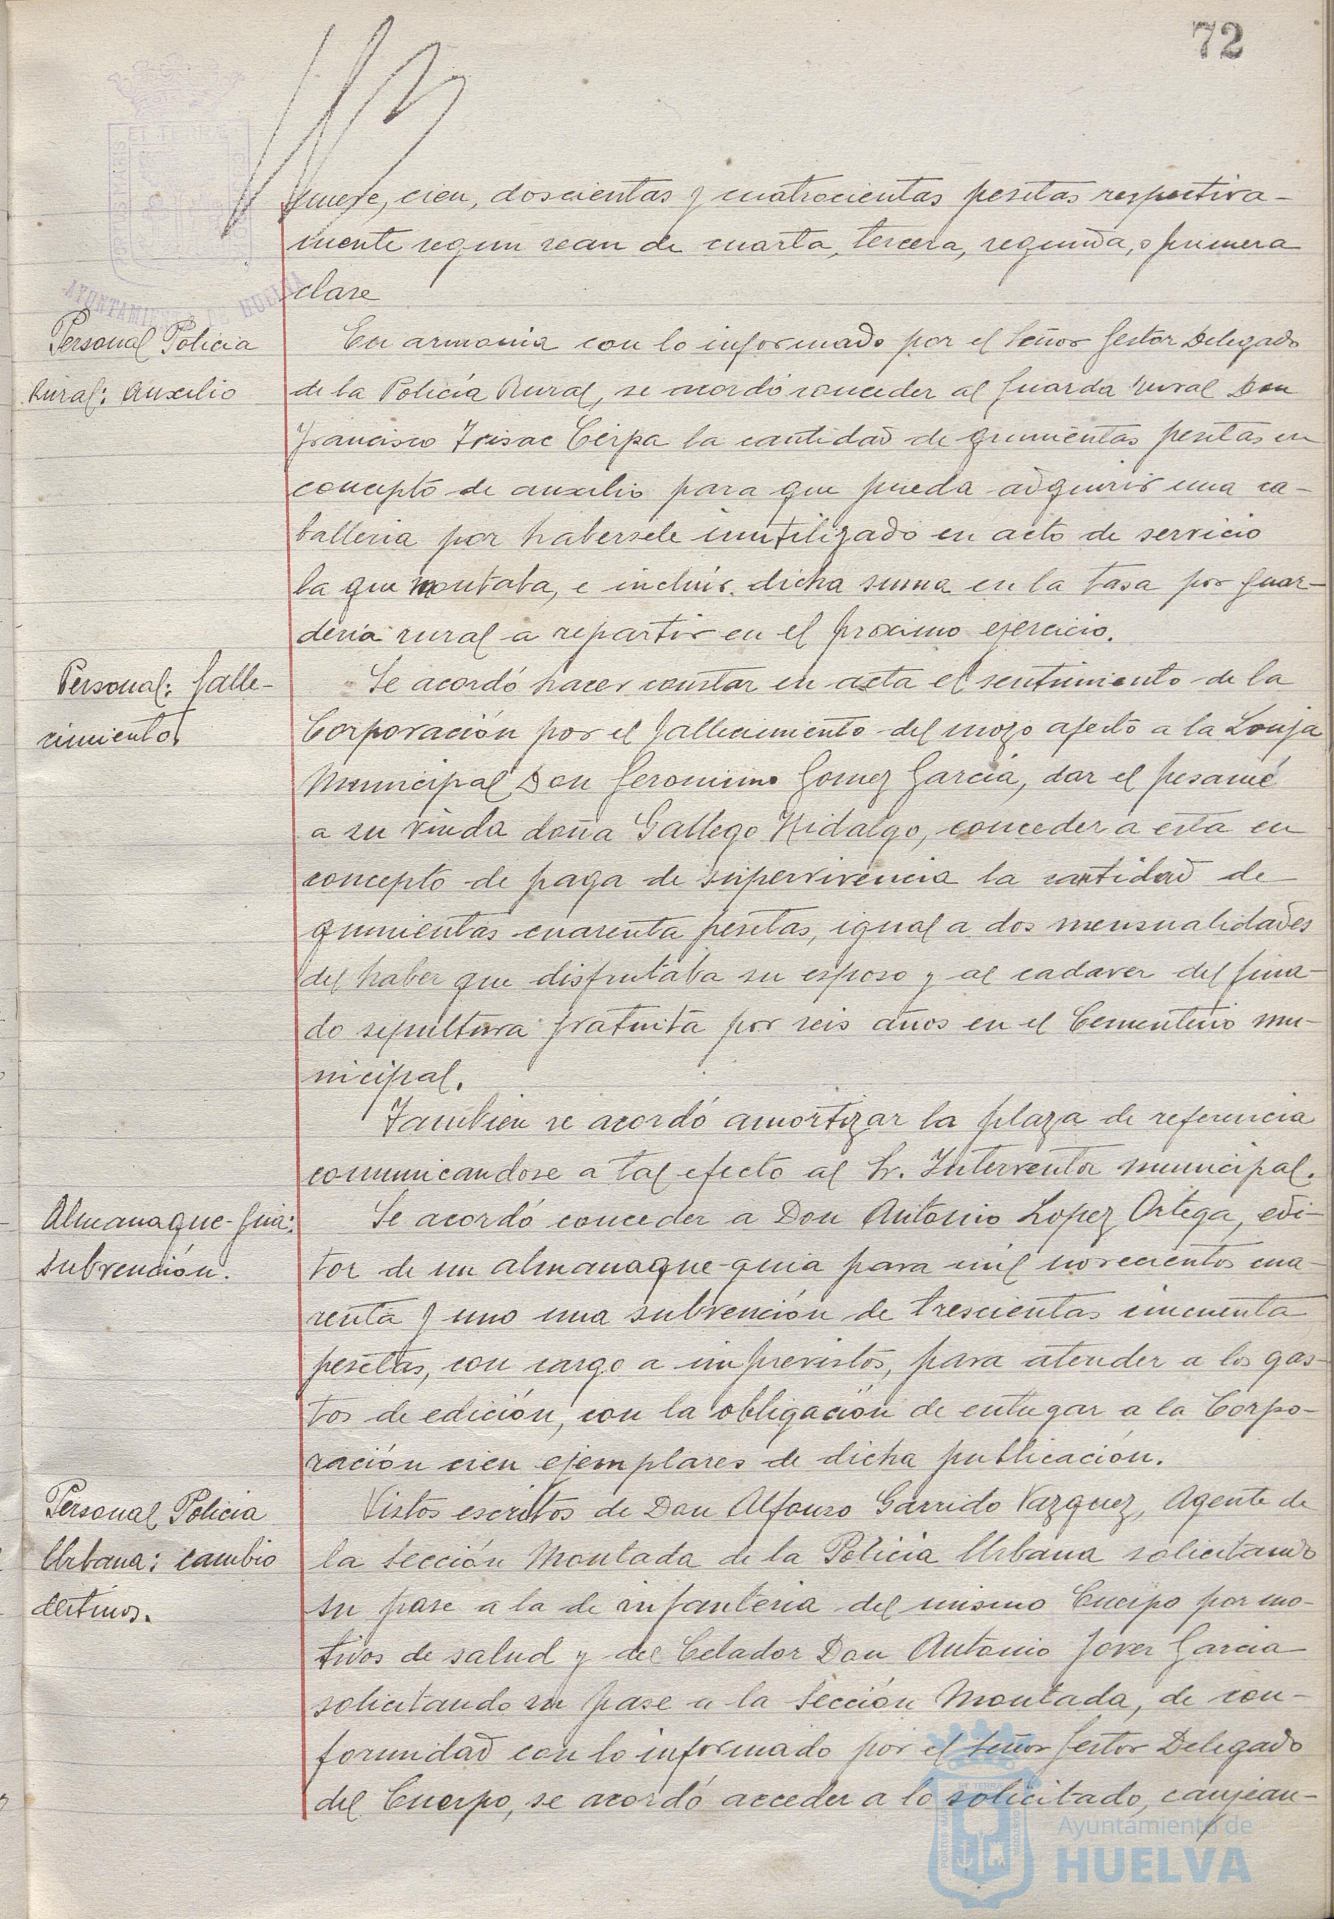 72
PORTUS MARIS ET TERRAE CUSTODIA
AYUNTAMIENTO DE HUELVA
cien, doscientas y cuatrocientas pesetas respectiva-
mente segun sean de cuarta, tercera, segunda, o primera
clase
Personal Policia
Rural: Auxilio
En armonia con lo informado por el Señor Gestor Delegado
de la Policía Rural, se acordó conceder al Guarda rural Don
Francisco Cerpa la cantidad de quinientas pesetas en
concepto de auxilio para que pueda adquirir una ca-
balleria por habersele inutilizado en acto de servicio
la que montaba, e incluir dicha suma en la tasa por guar-
deria rural a repartir en el proximo ejercicio.
Personal: falle-
cimiento.
Se acordó hacer constar en acta el sentimiento de la
Corporación por el fallecimiento del mozo afecto a la Lonja
Municipal Don Geronimo Gomez Garcia, dar el pesamé
a su viuda doña Gallego Hidalgo, conceder a esta en
concepto de paga de supervivencia la cantidad de
quinientas cuarenta pesetas, igual a dos mensualidades
del haber que disfrutaba su esposo y al cadaver del fina-
do sepultura gratuita por seis años en el Cementerio mu-
nicipal.
Tambien se acordó amortizar la plaza de referencia
comunicandose a tal efecto al Sr. Interventor municipal.
Almanaque-guia:
subvención.
Se acordó conceder a Don Antonio Lopez Ortega, edi-
tor de un almanaque-guia para mil novecientos cua-
renta y uno una subvención de trescientas cincuenta
pesetas, con cargo a imprevistos, para atender a los gas-
tos de edición, con la obligación de entregar a la Corpo-
ración cien ejemplares de dicha publicación.
Personal Policia
Urbana: cambio
destinos.
Vistos escritos de Don Alfonso Garrido Vazquez, Agente de
la Sección Montada de la Policia Urbana solicitando
su pase a la de infanteria del mismo Cuerpo por mo-
tivos de salud y del Celador Don Antonio Jover Garcia
solicitando su pase a la Sección Montada, de con-
formidad con lo informado por el Señor Gestor Delegado
del Cuerpo, se acordó acceder a lo solicitado, canjean-
Ayuntamiento de
HUELVA